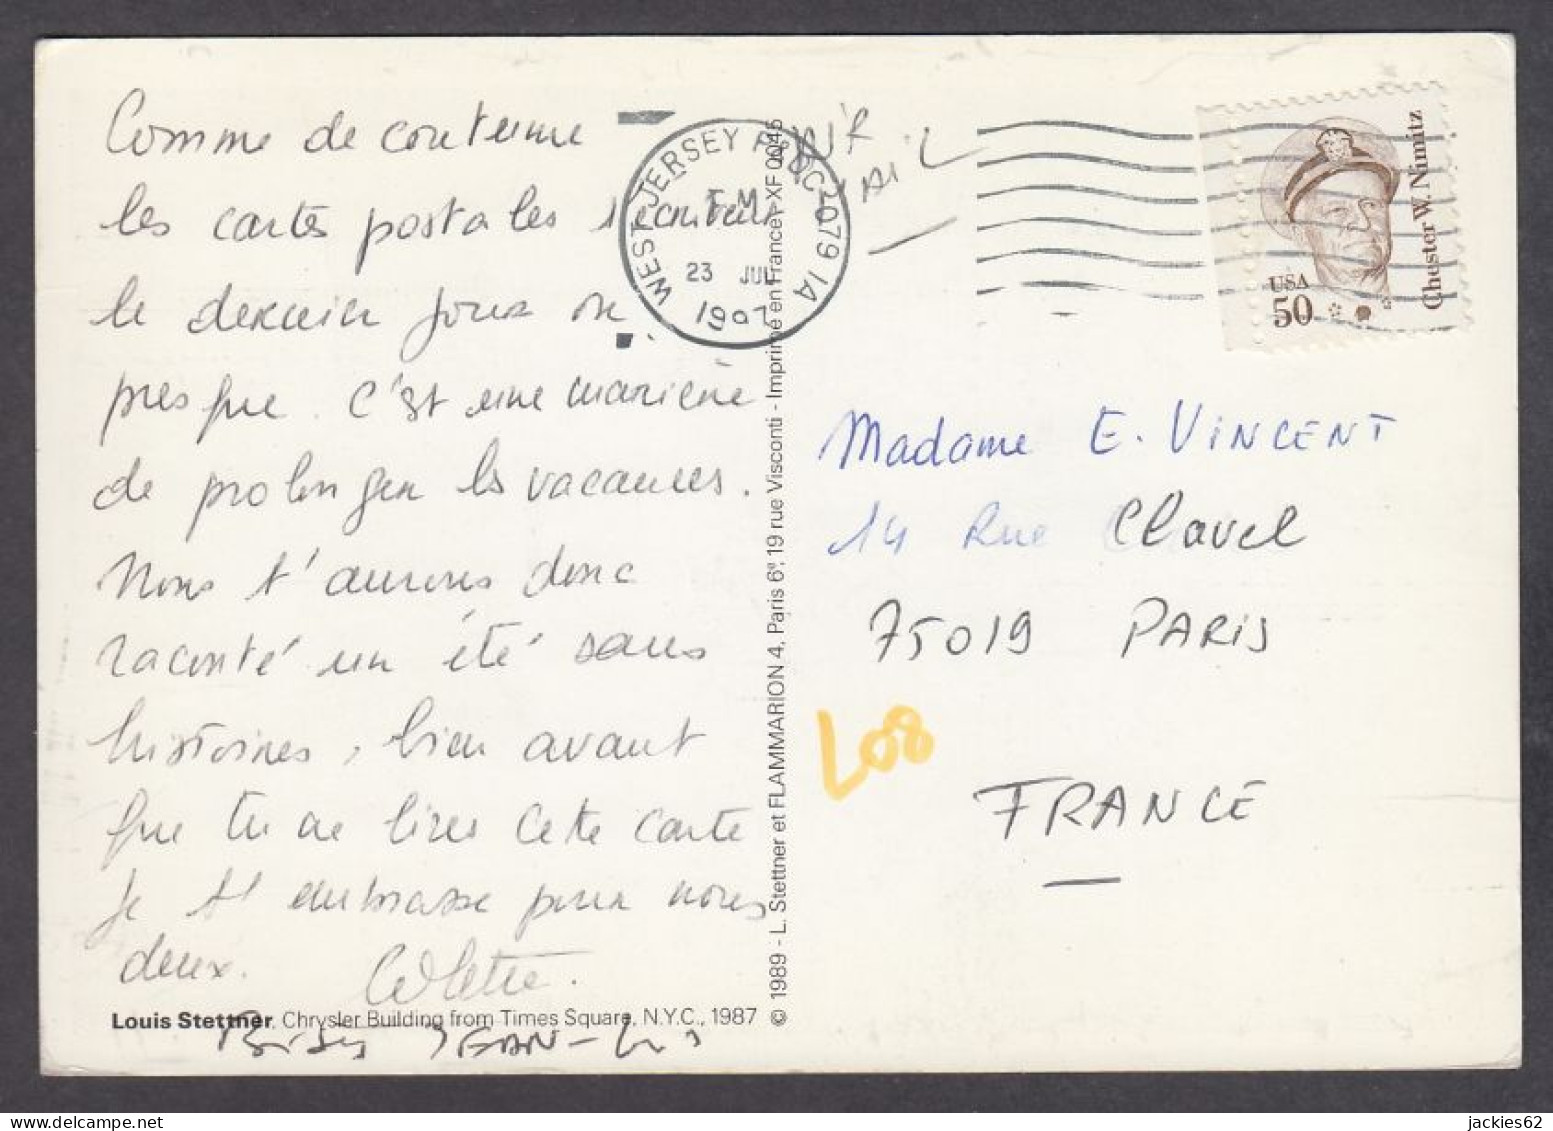 Comme de coutume
les cartes postales s'écrivent
le dernier jour ou
presque. C'est une manière
de prolonger les vacances.
Nous t'aurons donc
raconté un été sans
histoires, bien avant
que tu ne lises cette carte
Je t'embrasse pour nous
deux. Colette.
Louis Stettner, Chrysler Building from Times Square, N.Y.C., 1987
Bises JEAN-
© 1989 - L. Stettner et FLAMMARION 4, Paris 6e, 19 rue Visconti - Imprimé en France - XF 0045
WEST JERSEY P&DC 079 1A
PM
23 JUL
AIR
MAIL
Chester W. Nimitz
USA
50
Madame E. VINCENT
14 Rue Clavel
75019 PARIS
L08
FRANCE
jackies62